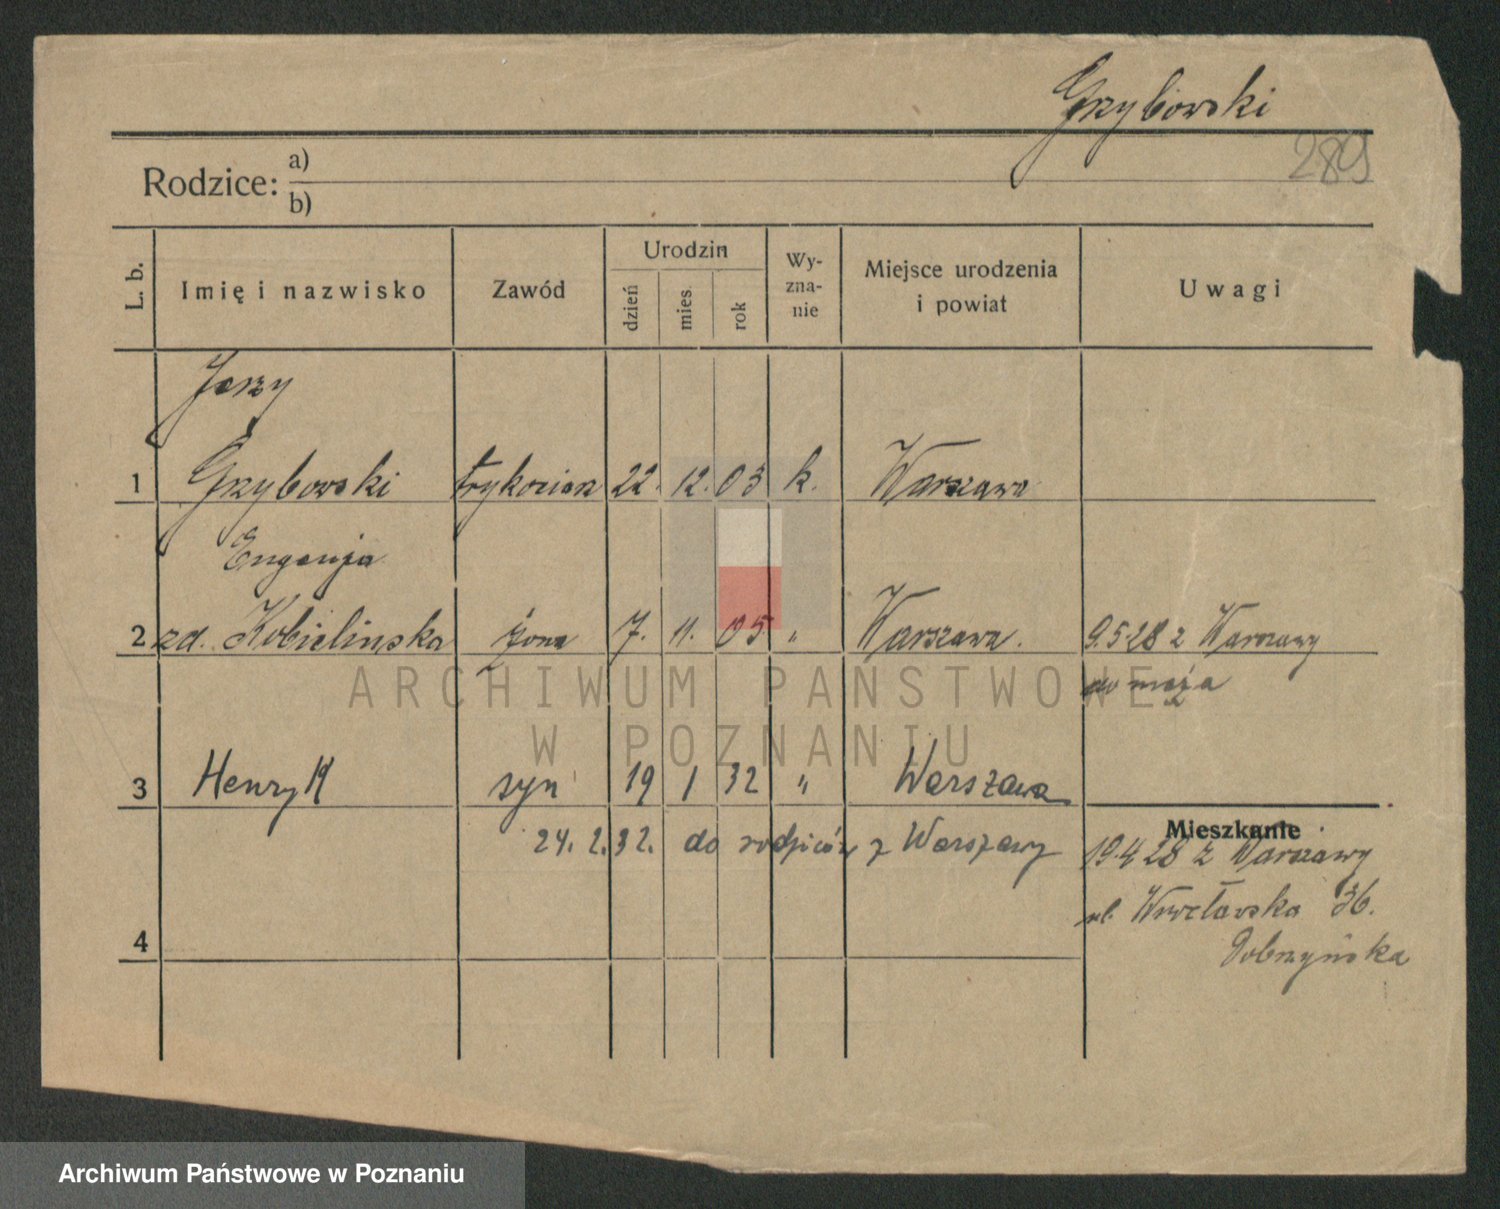 Grzybowski
289
Rodzice: a)
b)
L. b.
Imię i nazwisko
Zawód
Urodzin
dzień
mies.
rok
Wy-
zna-
nie
Miejsce urodzenia
i powiat
Uwagi
Jerzy
1 Grzybowski trykociarz 22. 12. 03 k. Warszawa
Eugenja
2 zd. Kobielinska żona 7. 11. 05 " Warszawa. 9.5.28 z Warszawy
do męża
3 Henryk syn 19 1 32 " Warszawa
24. 2. 32. do rodziców z Warszawy
Mieszkanie
19.4.28 z Warszawy
ul. Wrocławska 36.
Dobrzyńska
4
ARCHIWUM PAŃSTWOWE
W POZNANIU
Archiwum Państwowe w Poznaniu